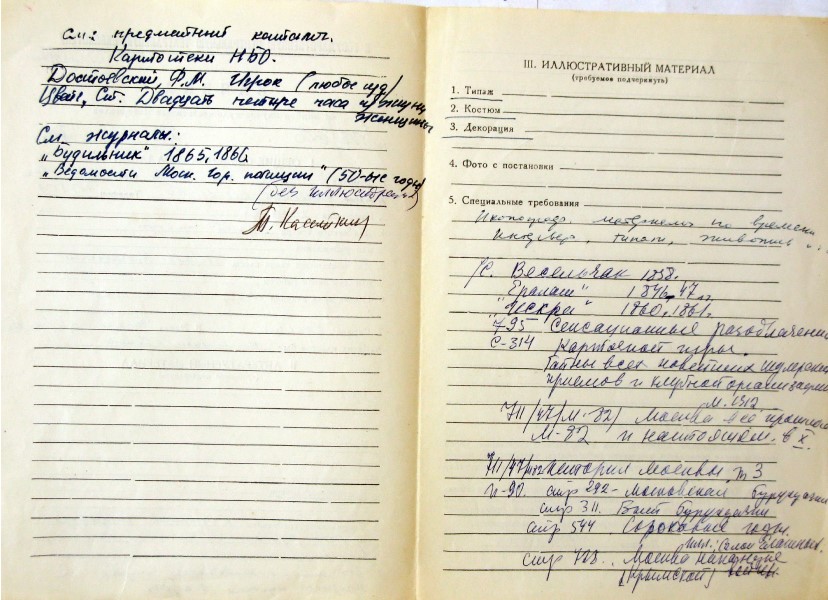 см: предметный каталог.
Картотеки Н50.
Достоевский, Ф.М. Игрок (любое изд)
Цвейг, Ст. Двадцать четыре часа из жизни
женщины
См. журналы:
„Будильник" 1865, 1866
„Ведомости Моск. гор. полиции" (50-ые годы)
(без иллюстраций)
III. ИЛЛЮСТРАТИВНЫЙ МАТЕРИАЛ
(требуемое подчеркнуть)
1. Типаж
2. Костюм
3. Декорация
4. Фото с постановки
5. Специальные требования
по времени
интерьер, типажи, живопись
Весельчак 1858.
„Ералаш" 1846-47 гг.
„Искра" 1860, 1861.
7-95 Сенсационные разоблачения
С-314 картежной игры.
Тайны всех новейших шулерских
приемов и клубной организации
М. 1912
711/47/М-82) Москва в её прошлом
М-82 и настоящем. в X.
История Москвы т 3
И-90. стр 292 - Московская буржуазия
стр 311. Быт буржуазии
стр 544 Сороковые годы.
илл.: Салон Елагиных.
Москва накануне
Крымской